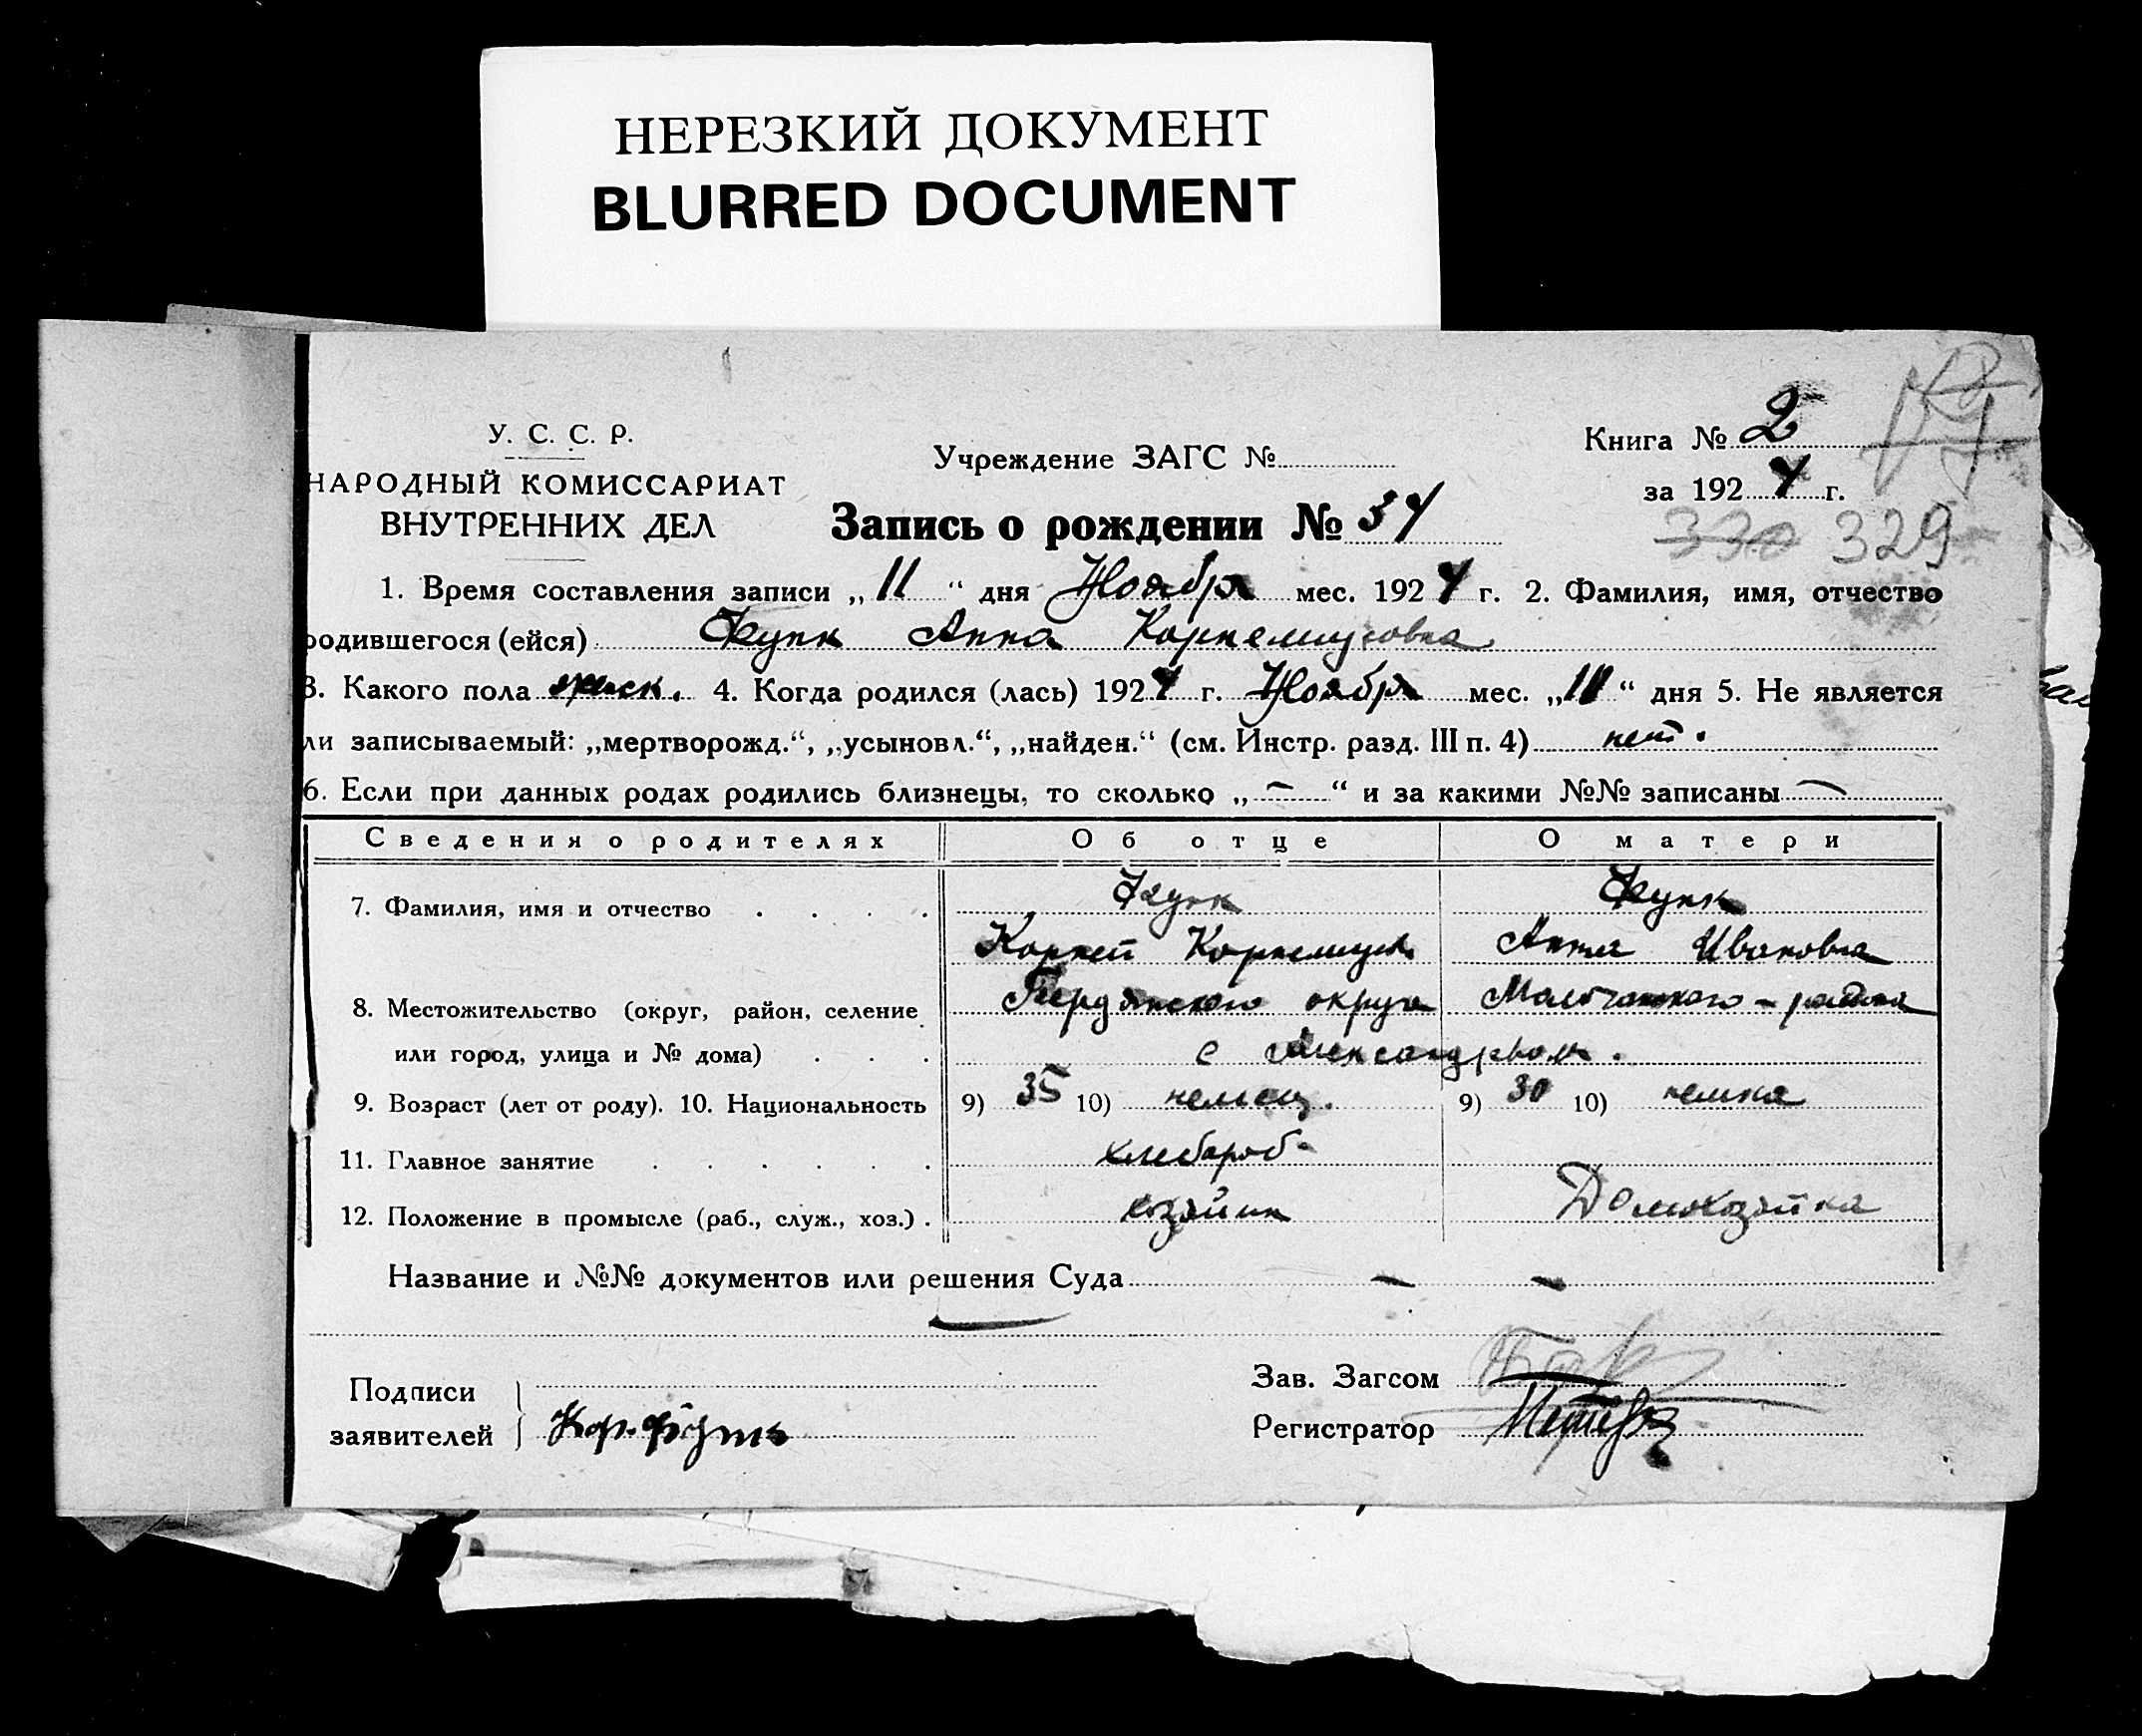 НЕРЕЗКИЙ ДОКУМЕНТ
BLURRED DOCUMENT
У. С. С. Р.
НАРОДНЫЙ КОМИССАРИАТ
ВНУТРЕННИХ ДЕЛ
Учреждение ЗАГС №
Книга № 2
за 1924 г.
Запись о рождении № 34
330 329
1. Время составления записи „11“ дня Ноября мес. 1924 г. 2. Фамилия, имя, отчество
родившегося (ейся) Функ Анна Корнелиусовна
3. Какого пола женск. 4. Когда родился (лась) 1924 г. Ноября мес. „10“ дня 5. Не является
ли записываемый: „мертворожд.“, „усыновл.“, „найден.“ (см. Инстр. разд. III п. 4) нет.
6. Если при данных родах родились близнецы, то сколько „ – “ и за какими №№ записаны –
Сведения о родителях Об отце О матери
7. Фамилия, имя и отчество . . . . Функ Функ
Корней Корнелиус. Анна Ивановна
8. Местожительство (округ, район, селение Бердянского округа Молочанского района
или город, улица и № дома) . . . с Александркрон.
9. Возраст (лет от роду). 10. Национальность 9) 35 10) немец. 9) 30 10) немка
11. Главное занятие . . . . . . хлебороб
12. Положение в промысле (раб., служ., хоз.) . хозяин Домохозяйка
Название и №№ документов или решения Суда – –
Подписи
заявителей Кор. Функ
Зав. Загсом
Регистратор